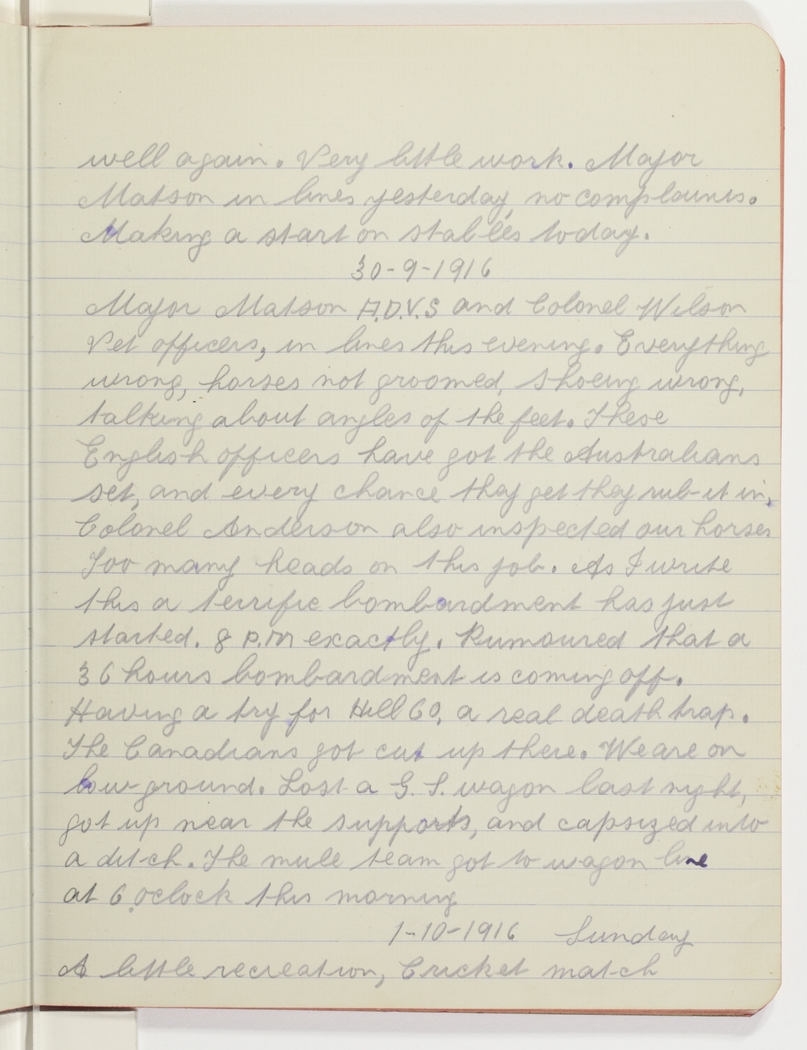 well again. Very little work. Major
Matson in lines yesterday no complaints.
Making a start on stables today.
30-9-1916
Major Matson A.D.V.S and Colonel Wilson
Vet officers, in lines this evening. Everything
wrong, horses not groomed, shoeing wrong,
talking about angles of the feet. These
English officers have got the Australians
set, and every chance they get they rub-it in.
Colonel Anderson also inspected our horses
Too many heads on this job. As I write
this a terrific bombardment has just
started. 8 P.M exactly. Rumoured that a
36 hours bombardment is coming off.
Having a try for Hill 60, a real death trap.
The Canadians got cut up there. We are on
low ground. Lost a G.S. wagon last night,
got up near the supports, and capsized into
a ditch. The mule team got to wagon line
at 6 oclock this morning
1-10-1916 Sunday
A little recreation, Cricket match